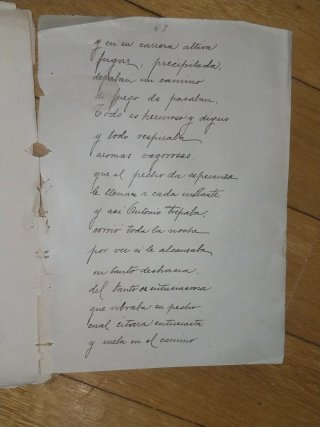 48
y en su carrera altiva
fugaz, precipitada,
dejaban un camino
de fuego do pasaban.
Todo es hermoso y digno
y todo respiraba
aromas vagorosos
que al pecho da esperanza
le llenan a cada instante
y asi Antonio trepaba,
corrio toda la noche
por ver si le alcansaba
en tanto deshacia,
del tanto entusiasmo
que vibraba su pecho
cual citara entusiasta
y mela en el camino